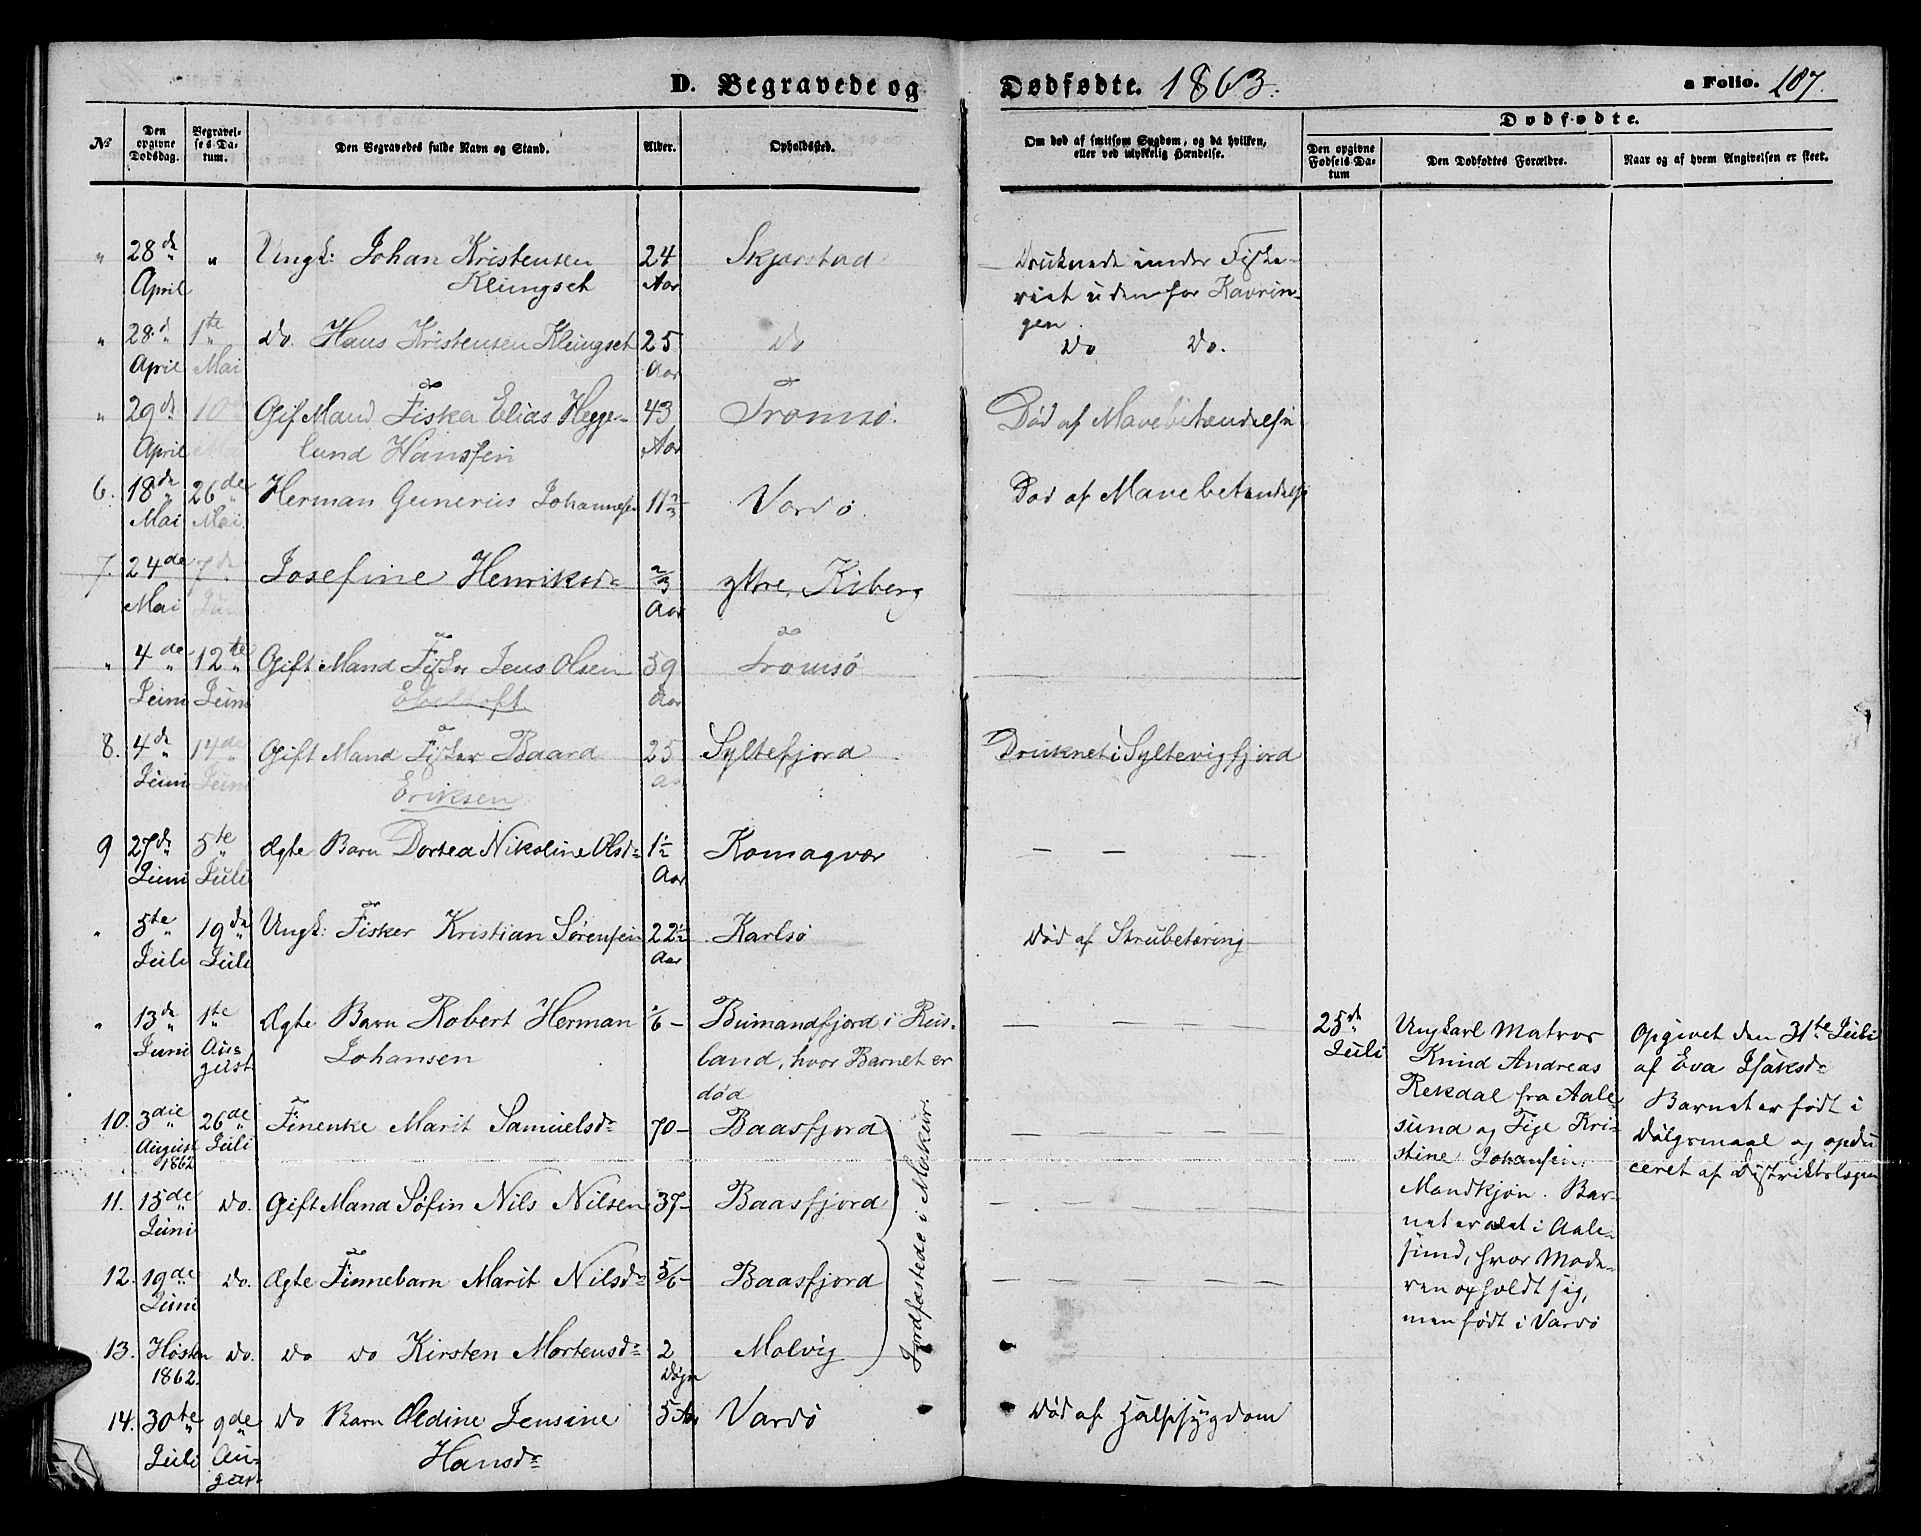 D. Begravede og Dødfødte. 1863. a Folio. 107.
No
Den opgivne Dødsdag.
Begravelses-Datum.
Den Begravedes fulde Navn og Stand.
Alder.
Opholdssted.
Om død af smitsom Sygdom, og da hvilken, eller ved ulykkelig Hændelse.
Dødfødte.
Den opgivne Fødsels-Datum
Den Dødfødtes Forældre.
Naar og af hvem Angivelsen er skeet.
" 28de " Ungk: Johan Kristensen 24 Skjerstad Druknede under Fiske-
April Klungset Aar riet udenfor Kavrin-
gen.
" 28d 1te do. Hans Kristensen Klungset 25 do do do.
April Mai Aar
" 29de 10 Gift Mand Fisker Elias Hegge- 43 Tromsø. Død af Mavebetændelse
April Mai lund Hansen Aar
6. 18de 26de Herman Gunerius Johannesen 11 2/3 Vardø. Død af Mavebetændelse
Mai Mai
7. 24de 7de Josefine Henriksdr 2/3 yttre Kiberg
Mai Juni Aar
" 4de 12te Gift Mand Fisker Jens Olsen 59 Tromsø
Juni Juni Ebeltoft Aar
8. 4de 14de Gift Mand Fisker Baard 25 Syltefjord Druknet i Syltevigfjord
Juni Juni Eriksen aar
9 27de 5te Ægte Barn Dortea Nikoline Olsdr 1½ Komagvær — — —
Juni Juli Aar
" 5te 19de Ungk: Fisker Kristian Sørensen 22½ Karlsø Død af Strubetæring
Juli Juli Aar
" 13de 1te Ægte Barn Robert Herman 1/6 — Bumandfjord i Rus- — — —
Juni Au- Johansen land, hvor Barnet er
gust død
25de Juli
Ungkarl Matros
Knud Andreas
Rekdal fra Aale-
sund og Pige Kri-
stine Johansen.
Mandkjøn. Bar-
net er avlet i Aale-
sund, hvor Mode-
ren opholdt sig,
men født i Vardø
Opgivet den 31te Juli
af Eva Isaksdr
Barnet er født i
Dølgsmaal og opdu
ceret af Distriktslægen
10. 3die 26de Finenke Marit Samuelsdr 70 — Baasfjord — — —
August Juli
1862
11. 15de do. Gift Mand Søfin Nils Nilsen 37 — Baasfjord — — —
Juni
12. 19de do. Ægte Finnebarn Marit Nilsdr 5/6 — Baasfjord — — —
Juni
13. Høsten do. do do Kirsten Mortensdr 2 Molvig
1862. Døgn
Jordfæstede i Makur.
14. 30te 9de do Barn Oldine Jensine 5 Aar Vardø Død af Halssygdom
Juli Au- Hansdr
gust